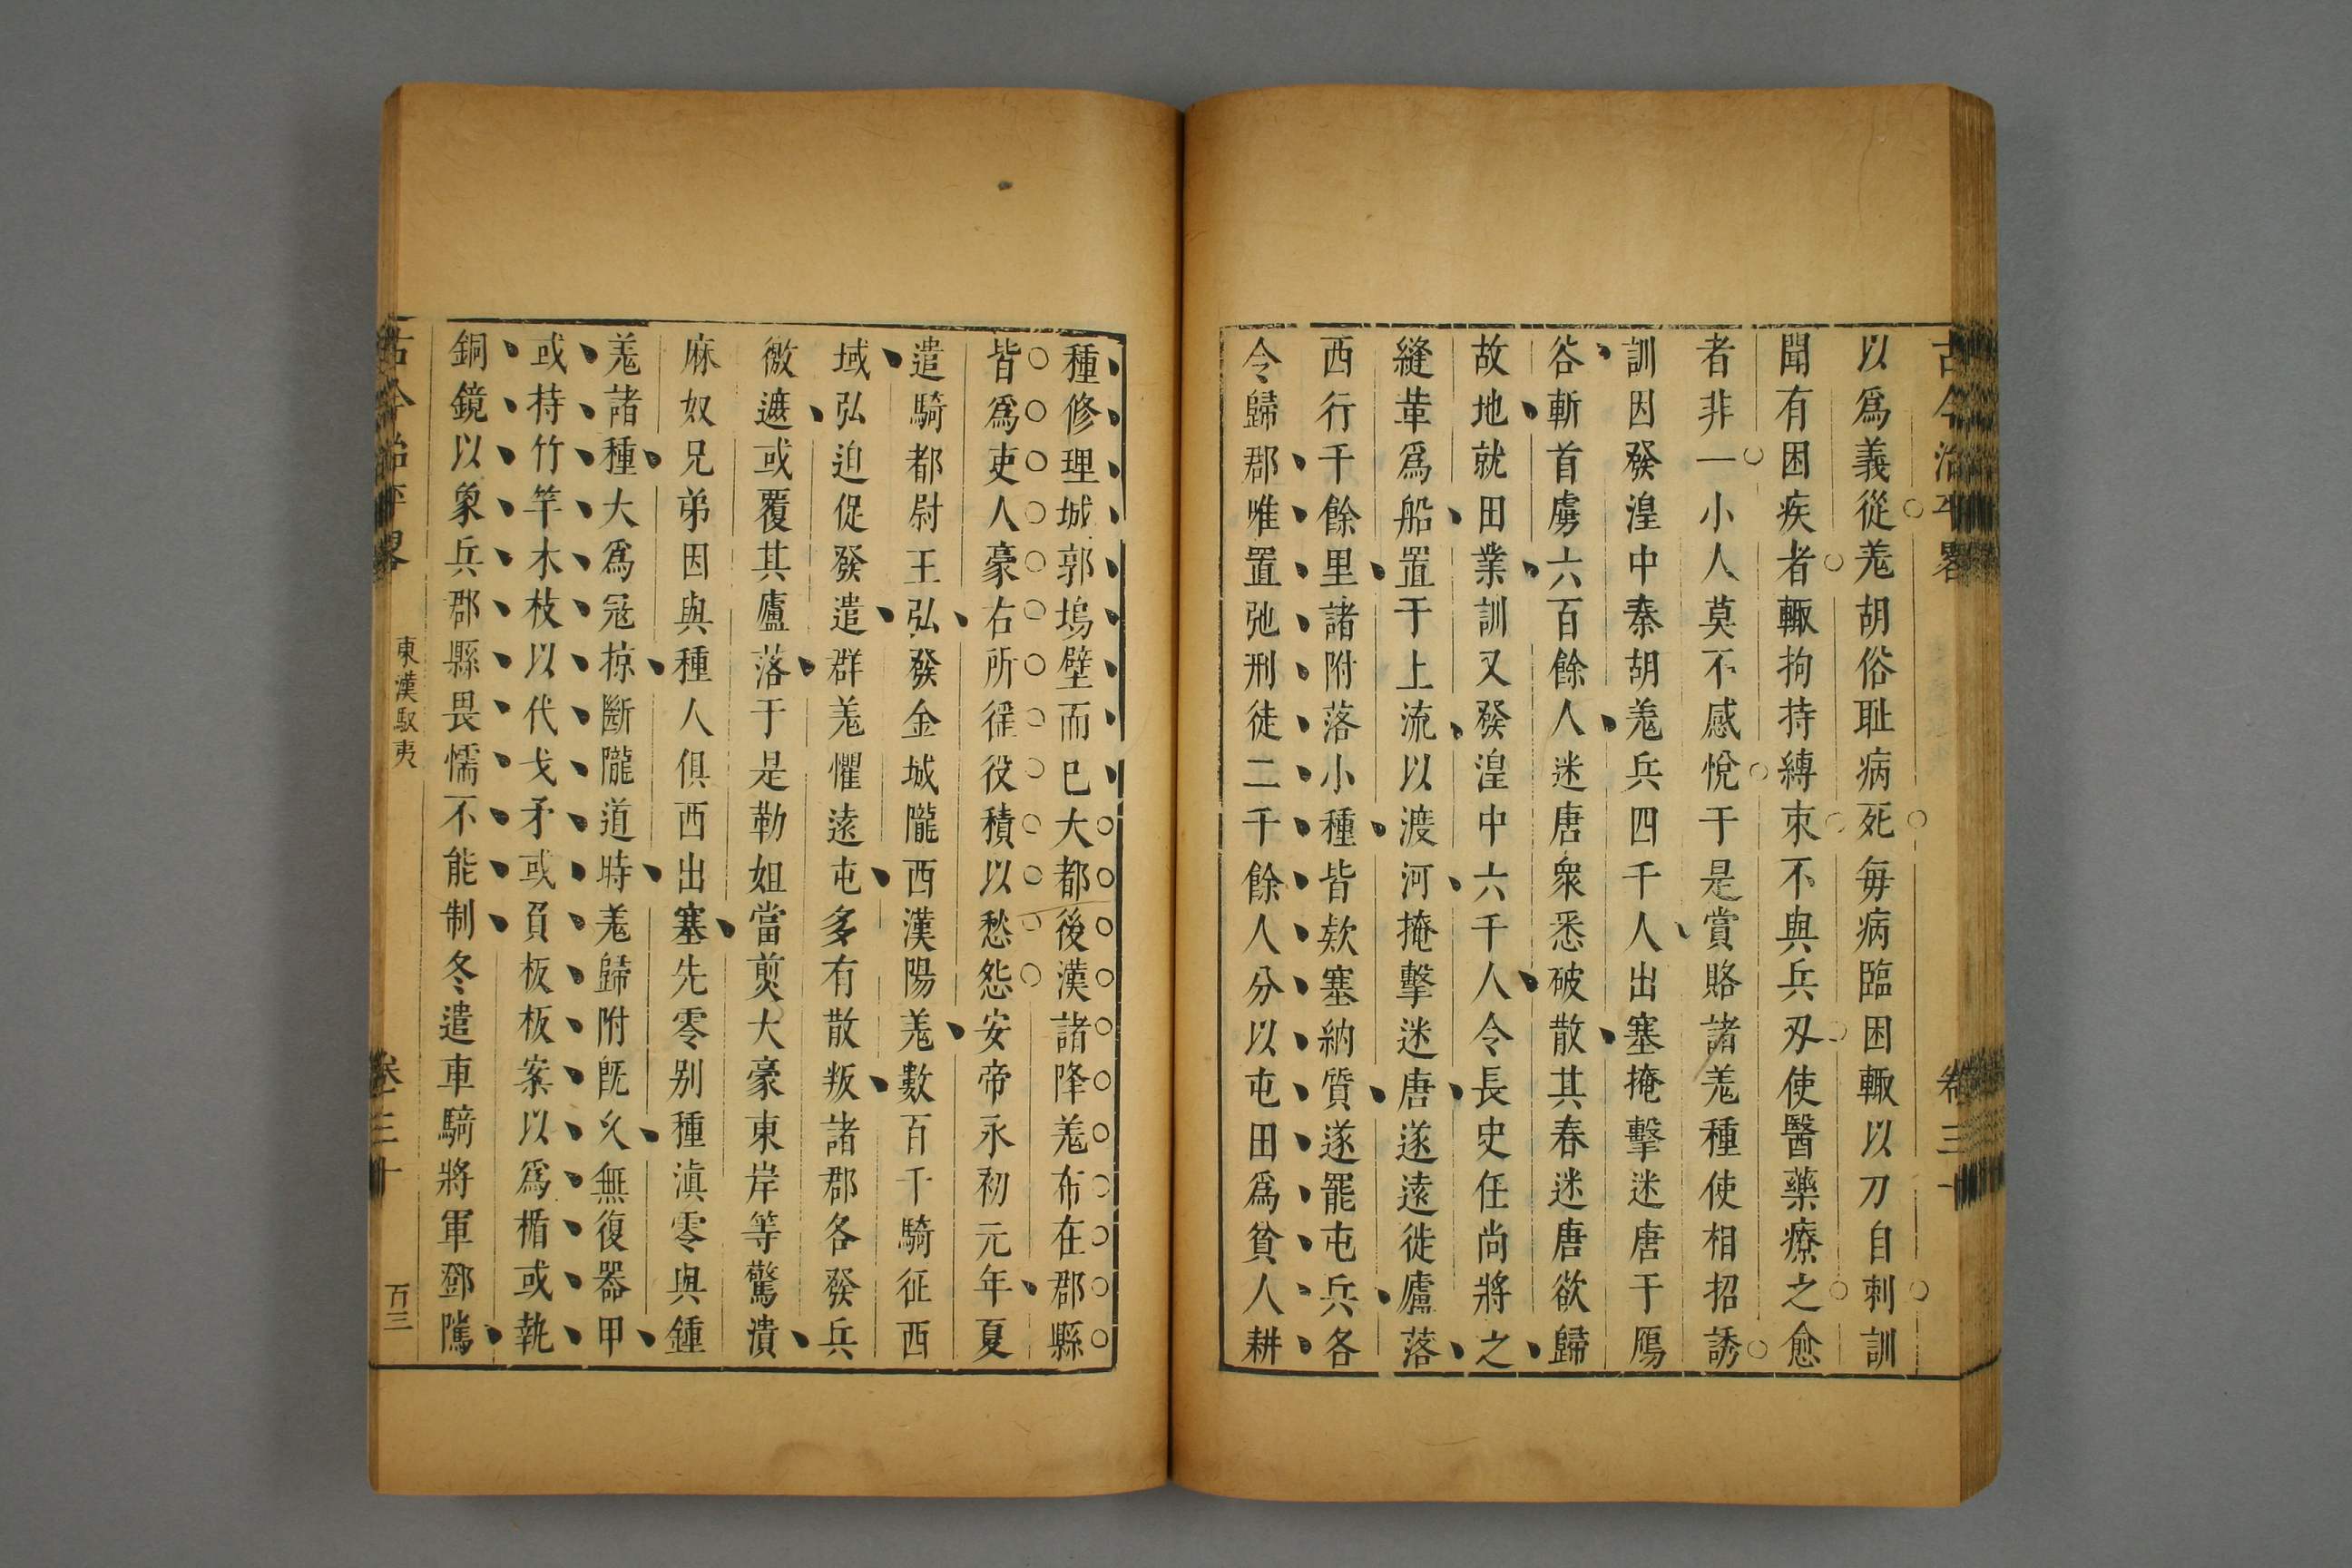 以爲義從羗胡俗耻病死每病臨困輙以刀自刺訓
聞有困疾者輙拘持縛束不與兵刃使醫藥療之愈
者非一小人莫不感悅于是賞賂諸羗種使相招誘
訓因發湟中秦胡羗兵四千人出塞掩擊迷唐于鴈
谷斬首虜六百餘人迷唐衆悉破散其春迷唐欲歸
故地就田業訓又發湟中六千人令長史任尚將之
縫革爲船置于上流以渡河掩擊迷唐遂遠徙廬落
西行千餘里諸附落小種皆欵塞納質遂罷屯兵各
令歸郡唯置弛刑徒二千餘人分以屯田爲貧人耕
種修理城郭塢壁而已大都後漢諸降羗布在郡縣
皆爲吏人豪右所徭役積以愁怨安帝永初元年夏
遣騎都尉王弘發金城隴西漢陽羗數百千騎征西
域弘迫促發遣群羗懼遠屯多有散叛諸郡各發兵
徼遮或覆其廬落于是勒姐當煎大豪東岸等驚潰
麻奴兄弟因與種人俱西出塞先零别種滇零與鍾
羗諸種大爲冦掠斷隴道時羗歸附旣久無復器甲
或持竹竿木枝以代戈矛或負板板案以爲楯或執
銅鏡以象兵郡縣畏懦不能制冬遣車騎將軍鄧隲
古今治平畧
東漢馭夷
卷三十
百三